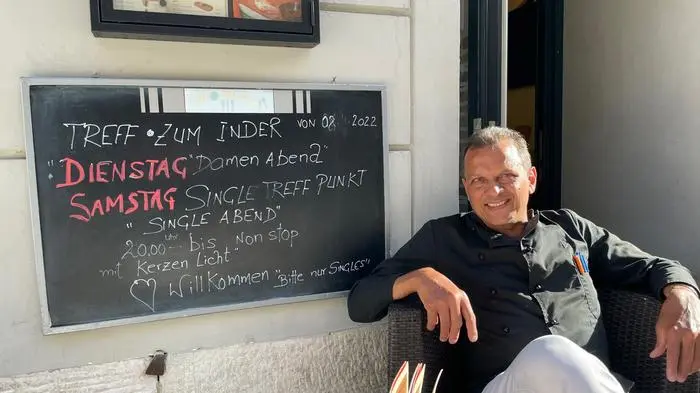 TREFF • ZUM INDER VON 08. 2022
"DIENSTAG "Damen Abend"
SAMSTAG SINGLE TREFF PUNKT
"SINGLE ABEND"
20,00 Uhr bis Non stop
mit Kerzen Licht"
♡ Willkommen "Bitte nur SINGLES"